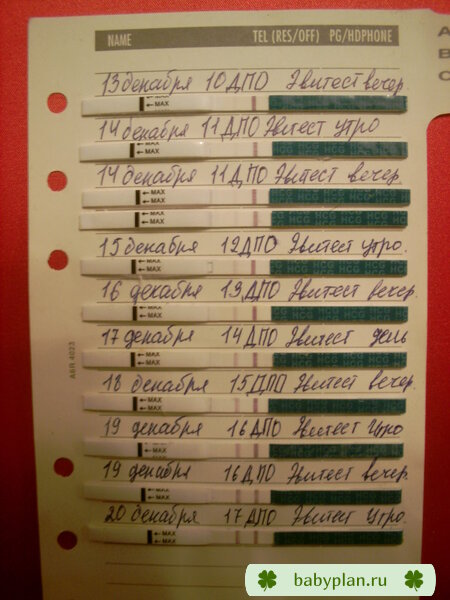 NAME TEL (RES/OFF) PG/HDPHONE
13 декабря 10 ДПО Эвитест вечер.
← MAX
14 декабря 11 ДПО Эвитест утро
← MAX
14 декабря 11 ДПО Эвитест вечер.
← MAX
← MAX
15 декабря 12 ДПО Эвитест утро.
← MAX HCG HCG HCG
16 декабря 13 ДПО Эвитест вечер.
← MAX
17 декабря 14 ДПО Эвитест день
← MAX
18 декабря 15 ДПО Эвитест вечер.
← MAX
19 декабря 16 ДПО Эвитест утро
← MAX
19 декабря 16 ДПО Эвитест вечер.
← MAX
20 декабря 17 ДПО Эвитест утро.
← MAX
ABR 4023
babyplan.ru